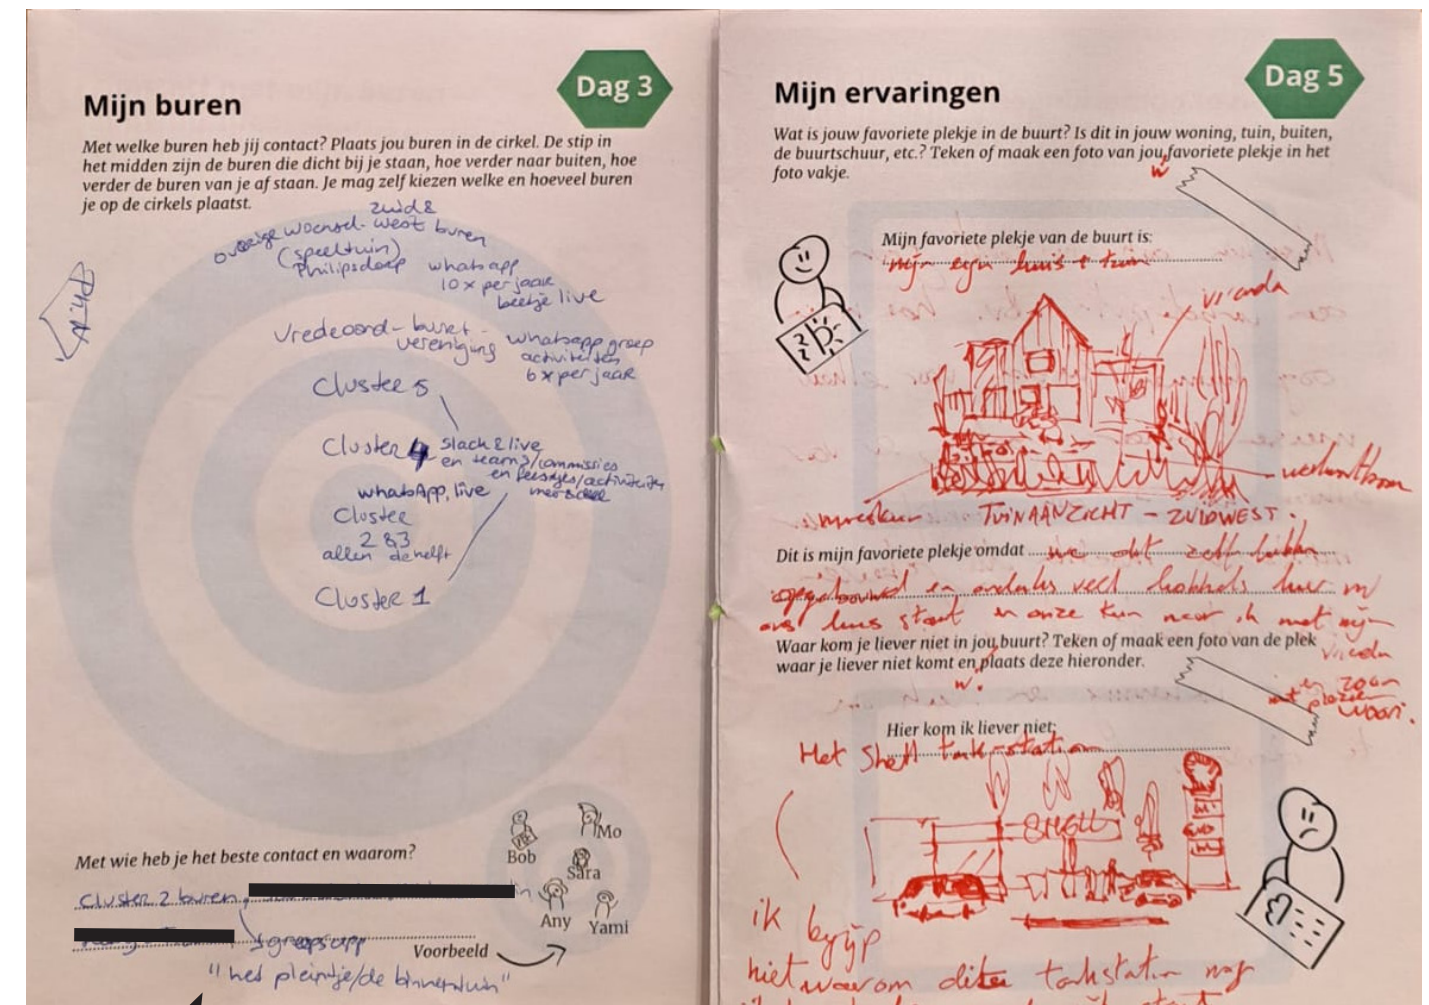 Dag 3
Mijn buren
Met welke buren heb jij contact? Plaats jou buren in de cirkel. De stip in
het midden zijn de buren die dicht bij je staan, hoe verder naar buiten, hoe
verder de buren van je af staan. Je mag zelf kiezen welke en hoeveel buren
je op de cirkels plaatst.
zuid &
overige woensel-west buren
(speeltuin)
Philipsdorp
whatsapp
10x per jaar
beetje live
Vredeoord-buurt-
vereniging
whatsapp groep
activiteiten
6x per jaar
Cluster 5
Cluster 4
slack & live
en teams/commissies
en feestjes/activiteiten
whatsApp, live
Cluster
2 & 3
allen de helft
Cluster 1
Bob
Mo
Sara
Any
Yami
Met wie heb je het beste contact en waarom?
Cluster 2 buren,
groepsapp
Voorbeeld
"het pleintje/de binnentuin"
Dag 5
Mijn ervaringen
Wat is jouw favoriete plekje in de buurt? Is dit in jouw woning, tuin, buiten,
de buurtschuur, etc.? Teken of maak een foto van jouw favoriete plekje in het
foto vakje.
Mijn favoriete plekje van de buurt is:
mijn eigen huis & tuin
TUINAANZICHT - ZUIDWEST.
Dit is mijn favoriete plekje omdat we dit zelf hebben
opgebouwd en veel hier in
ons huis staat en onze tuin waar ik met mijn
vriendin
en zoon
met plezier
woon.
Waar kom je liever niet in jouw buurt? Teken of maak een foto van de plek
waar je liever niet komt en plaats deze hieronder.
Hier kom ik liever niet:
Het Shell tankstation
SHELL
ik
begrijp
niet waarom dit tankstation nog